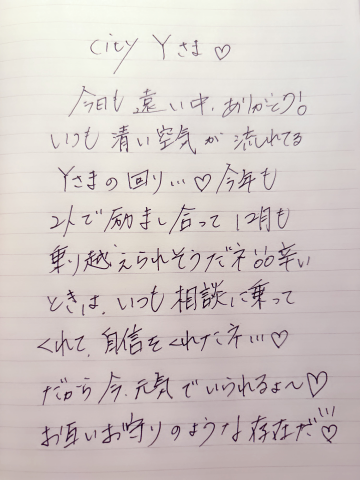 city Yさま♡
今日も遠い中、ありがとう!
いつも清い空気が流れてる
Yさまの回り…♡今年も
2人で励まし合って12月も
乗り越えられそうだネ 辛い
ときは、いつも相談に乗って
くれて、自信をくれたネ…♡
だから今、元気でいられるよ〜♡
お互いお守りのような存在だ♡